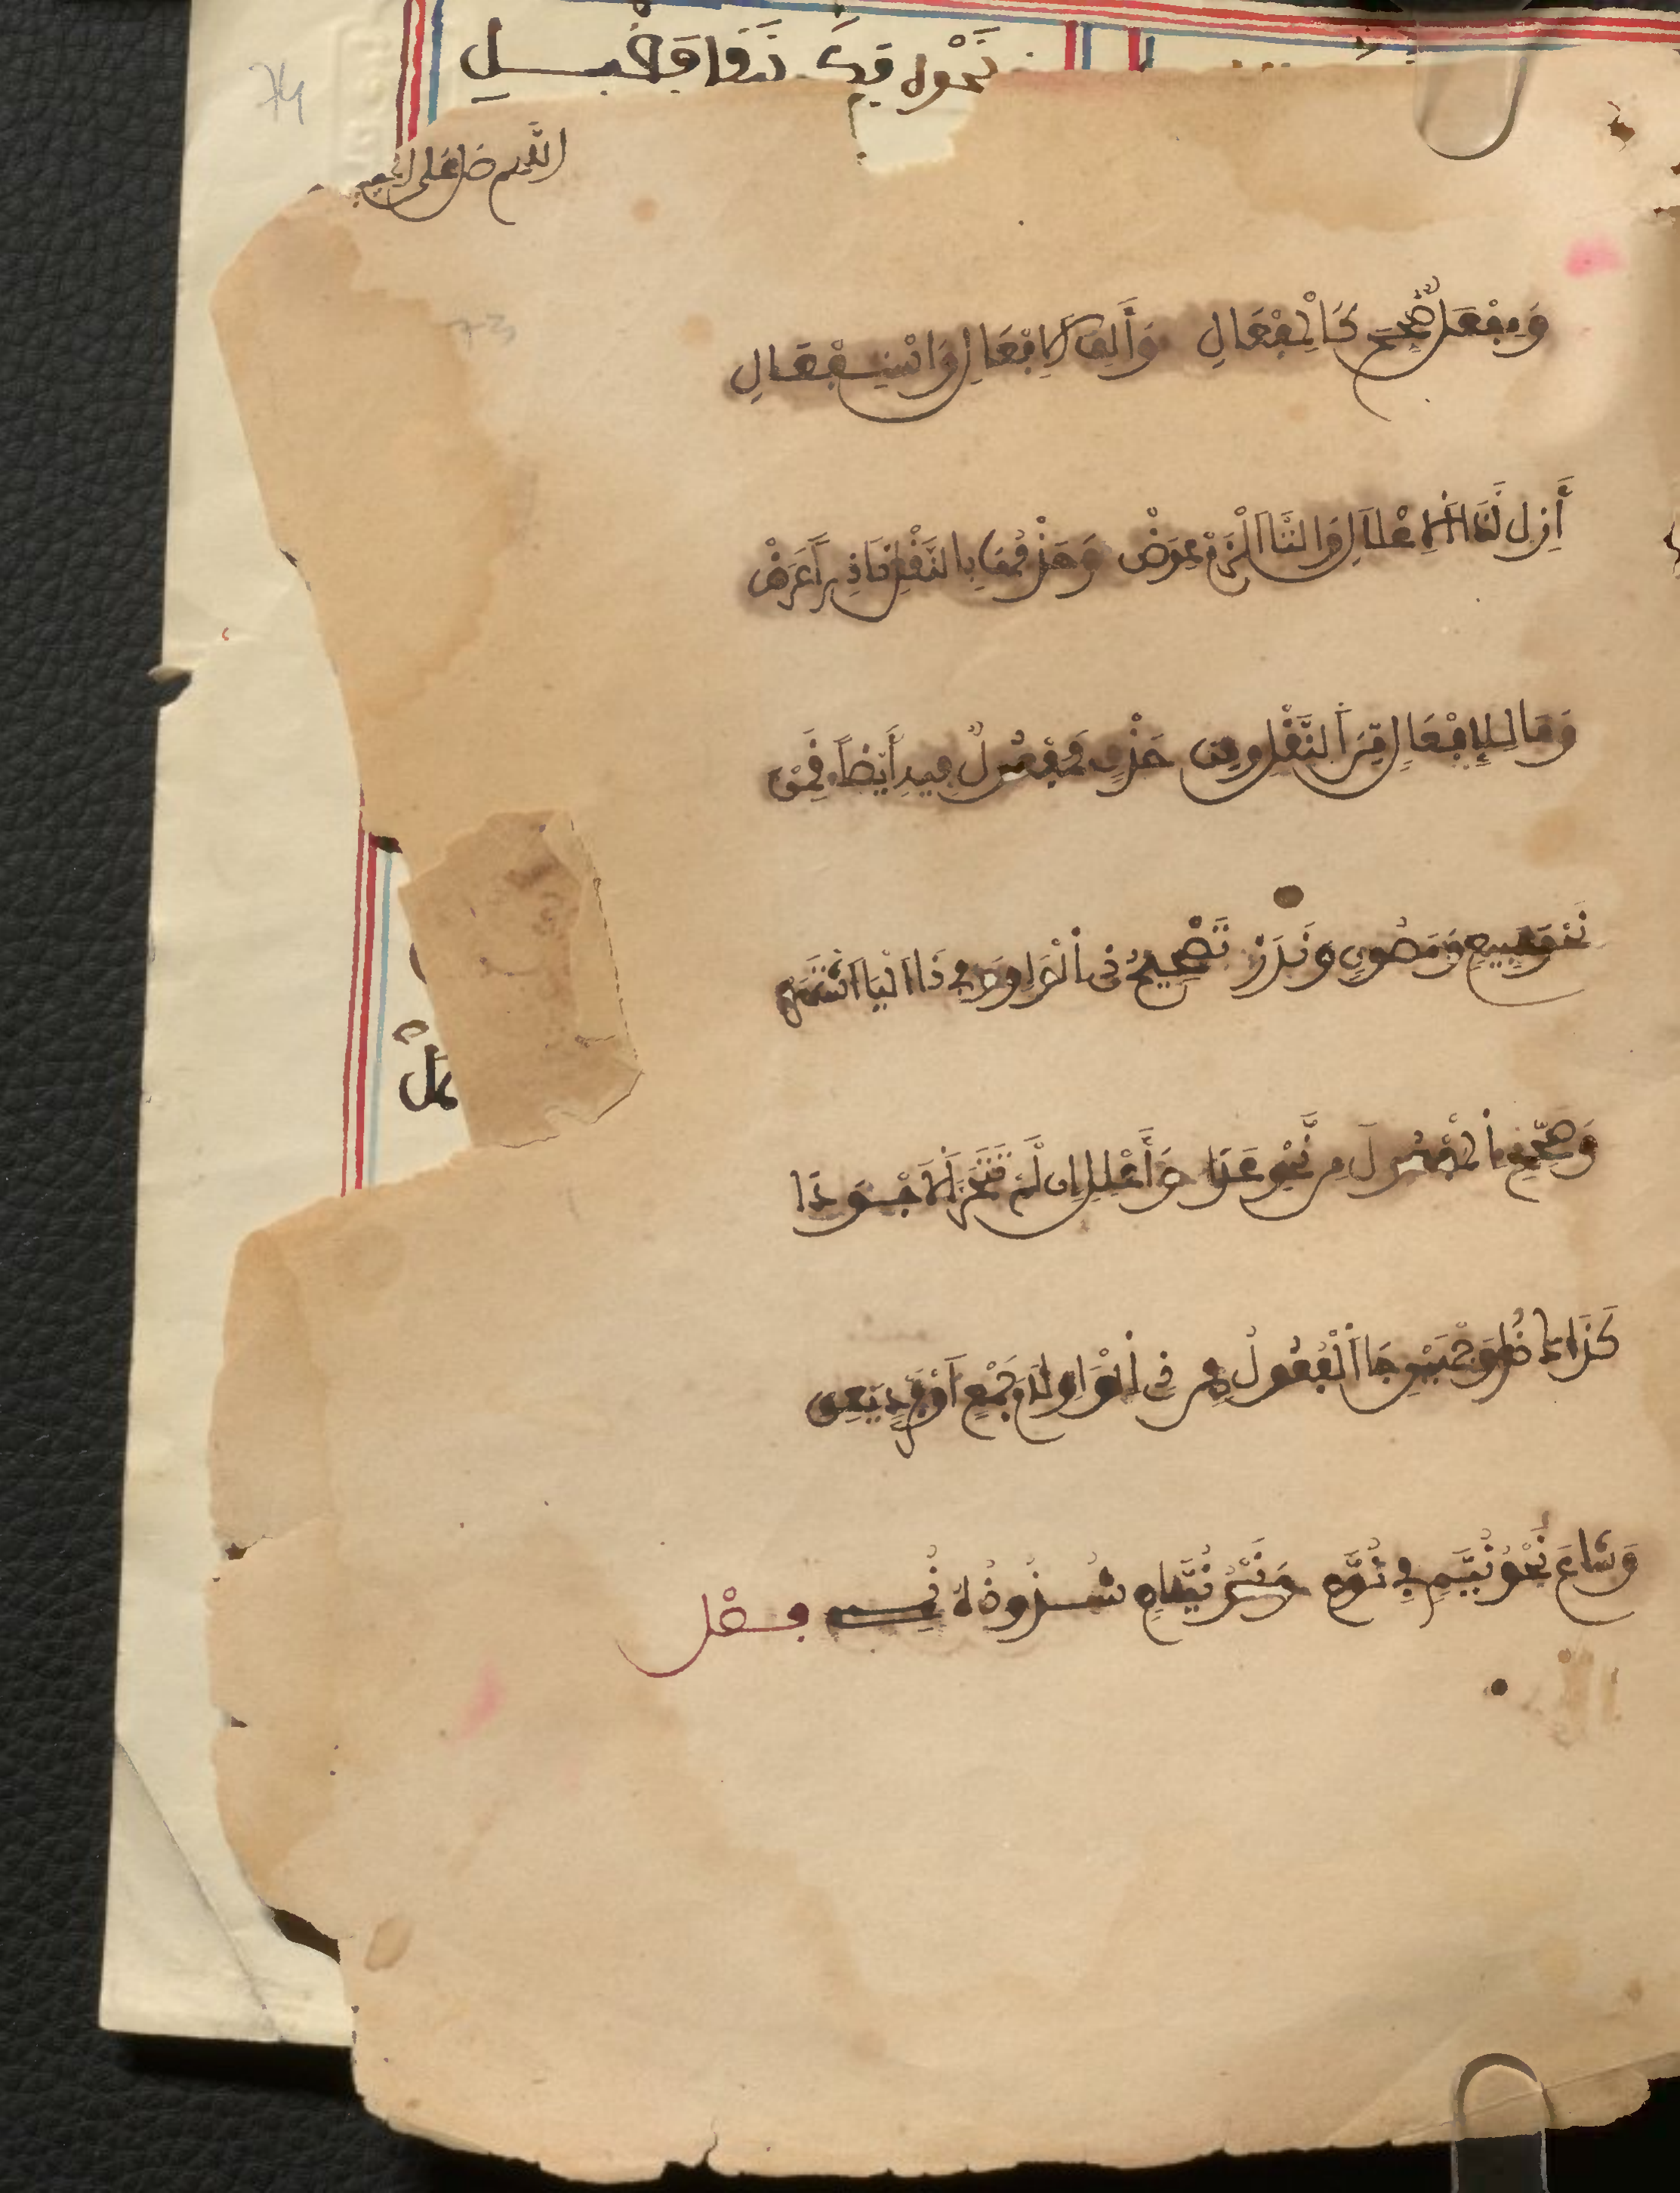 نَحْوِهِ
اللهم صل على
وَمِفْعَلٌ صُحِّحَ كَالْمِفْعَالِ وَأَلِفَ الْإِفْعَالِ وَاسْتِفْعَالِ
أَزِلْ لِذَا الْإِعْلَالِ وَالتَّا الْزَمْ عِوَضْ وَحَذْفُهَا بِالنَّقْلِ نَادِرًا عَرَضْ
وَمَا لِلْإِفْعَالِ مِنَ النَّقْلِ وَمِنْ حَذْفٍ فَمَفْعُولٌ بِهِ أَيْضًا قَمِنْ
نَحْوُ مَبِيعٍ وَمَصُونٍ وَنَدَرْ تَصْحِيحُ ذِي الْوَاوِ وَفِي ذَا الْيَا اشْتَهَرْ
وَصَحِّحِ الْمَفْعُولَ مِنْ نَحْوِ عَدَا وَأَعْلِلِ إِنْ لَمْ تَتَحَرَّ الْأَجْوَدَا
كَذَاكَ ذَا وَجْهَيْنِ جَا الْفُعُولُ مِنْ ذِي الْوَاوِ لَامَ جَمْعٍ أَوْ فَرْدٍ يَعِنْ
وَشَاعَ نَحْوُ نُيَّمٍ فِي نُوَّمِ وَنَحْوُ نُيَّامٍ شُذُوذُهُ نُمِي فصل